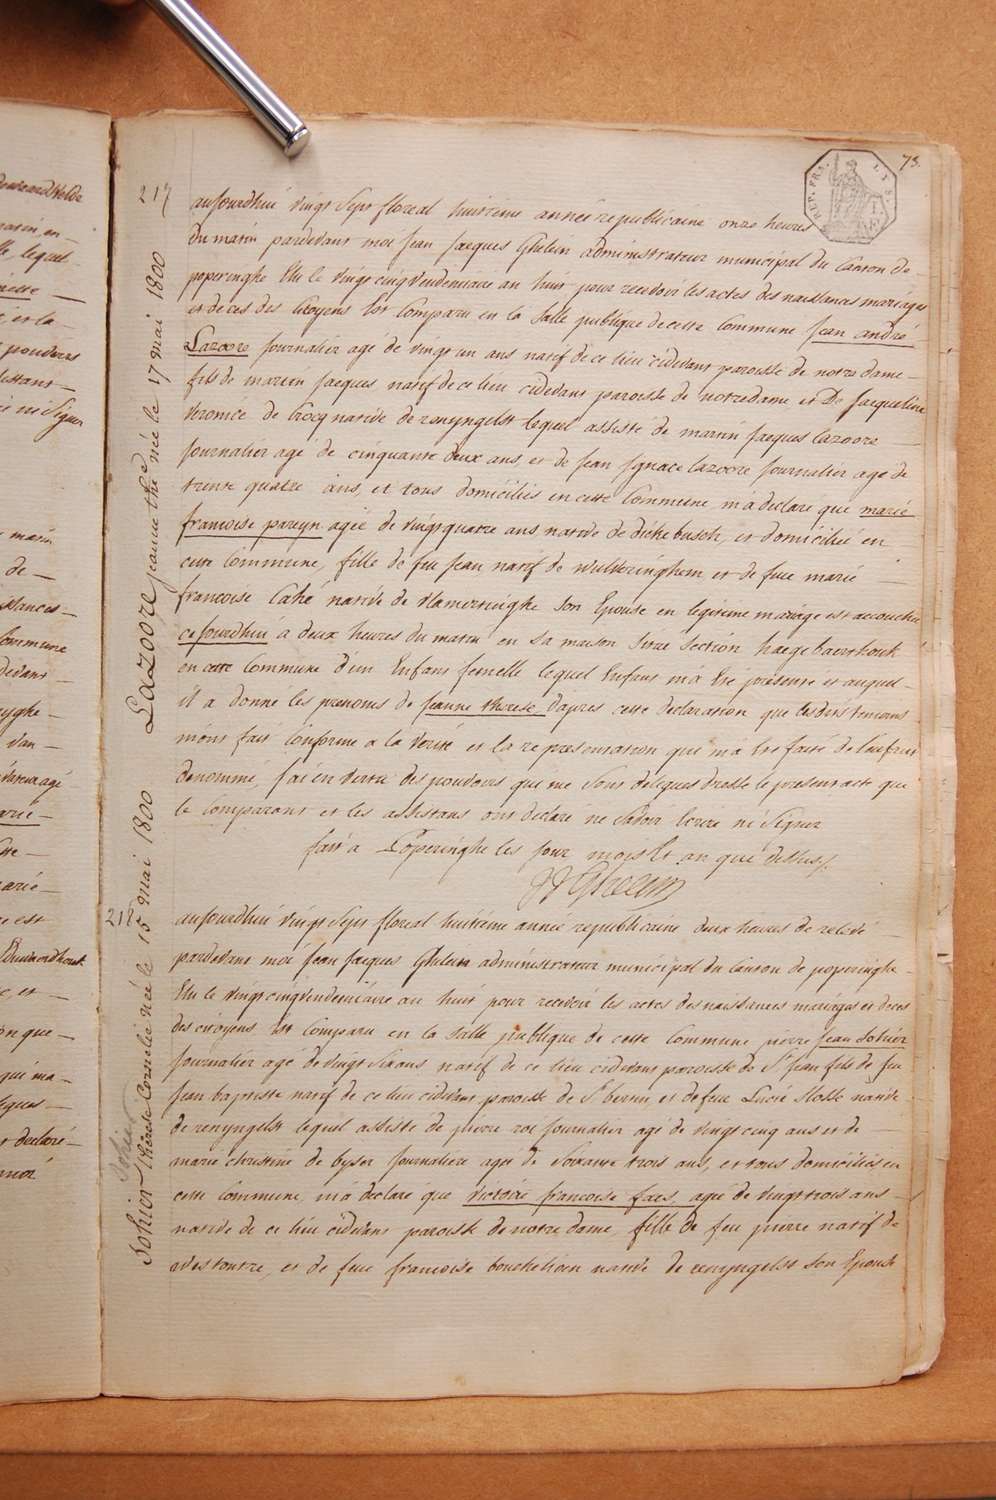 73.
REP. FRA.
LYS.
217
aujourdhui vingt Sept floreal huitieme année republicaine onze heures
Du matin pardevant moi Jean Jacques Ghelein administrateur municipal du Canton de
poperinghe Elu le vingt cinq vendemiaire an huit pour recevoir les actes des naissances mariages
et deces des Citoyens Est Comparu en la Salle publique de cette Commune Jean andré
Lazoore Journalier agé de vingt un ans natif de ce lieu cidevant paroisse de notre dame
fils de martin Jacques natif de ce lieu cidevant paroisse de notredame et De Jacqueline
veronice de Crocq native de renyngelst lequel assisté de martin Jacques Lazoore
Journalier agé de cinquante deux ans, et de Jean Ignace Lazoore Journalier agé de
trente quatre ans, et tous domiciliés en cette Commune m'a declaré que marie
francoise pareyn agée de vingt quatre ans native de dickebusch, et domiciliée en
cette Commune, fille de feu Jean natif de Wulveringhem et de feue marie
francoise Cahé native de vlamertinghe Son Epouse en legitime mariage est accouchée
cejourdhui à deux heures du matin en sa maison Sise Section haegebaerthouk
en cette Commune d'un Enfant femelle lequel Enfant m'à Eté présenté et auquel
il a donné les prenoms de Jeanne therese d'apres cette declaration que les dits temoins
m'ont fait Conforme a la verité et la representation que m'a Eté faite de l'enfant
denommé, j'ai en vertu des pouvoirs qui me sont delegues dressé le present acte que
le comparant et les assistans ont declaré ne Savoir Ecrire ni Signer
fait à Poperinghe les jour mois Et an que dessus.
JJ Ghelein
218
aujourdhui vingt Sept floreal huitieme année republicaine deux heures de relevé
pardevant moi Jean Jacques Ghelein administrateur municipal du Canton de poperinghe
Elu le vingt cinq vendemiaire an huit pour recevoir les actes des naissances mariages et deces
des citoyens Est Comparu en la Salle publique de cette Commune pierre Jean Sohier
Journalier agé de vingt Six ans natif de ce lieu cidevant paroisse de St Jean fils de feu
Jean baptiste natif de ce lieu cidevant paroisse de St bertin, et de feue Lucie Slosse native
de renyngelst lequel assisté de pierre roi Journalier agé de vingt cinq ans et de
marie christine de byser Journaliere agée de Soixante trois ans, et tous domiciliés en
cette Commune, m'à declaré que victoire francoise faes agée de vingt trois ans
native de ce lieu cidevant paroisse de notre dame, fille de feu pierre natif de
Westoutre, et de feue francoise bouchelioen native de renyngelst Son Epouse
LAZOORE Jeanne thérèse née le 17 mai 1800
Sohier Thérèse Cornélie née le 15 mai 1800
Sohier